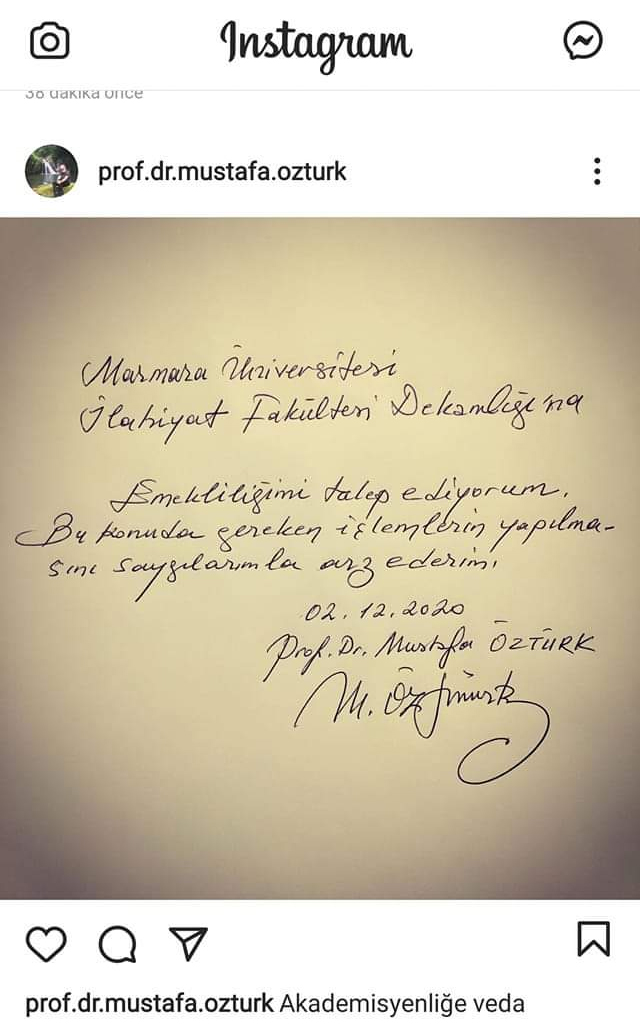 Instagram
38 dakika önce
prof.dr.mustafa.ozturk
Marmara Üniversitesi
İlahiyat Fakültesi Dekanlığı'na
Emekliliğimi talep ediyorum.
Bu konuda gereken işlemlerin yapılma-
sını saygılarımla arz ederim.
02.12.2020
Prof. Dr. Mustafa ÖZTÜRK
M. Öztürk
prof.dr.mustafa.ozturk Akademisyenliğe veda